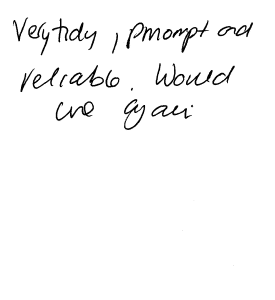 Very tidy, prompt and
reliable. Would
use again